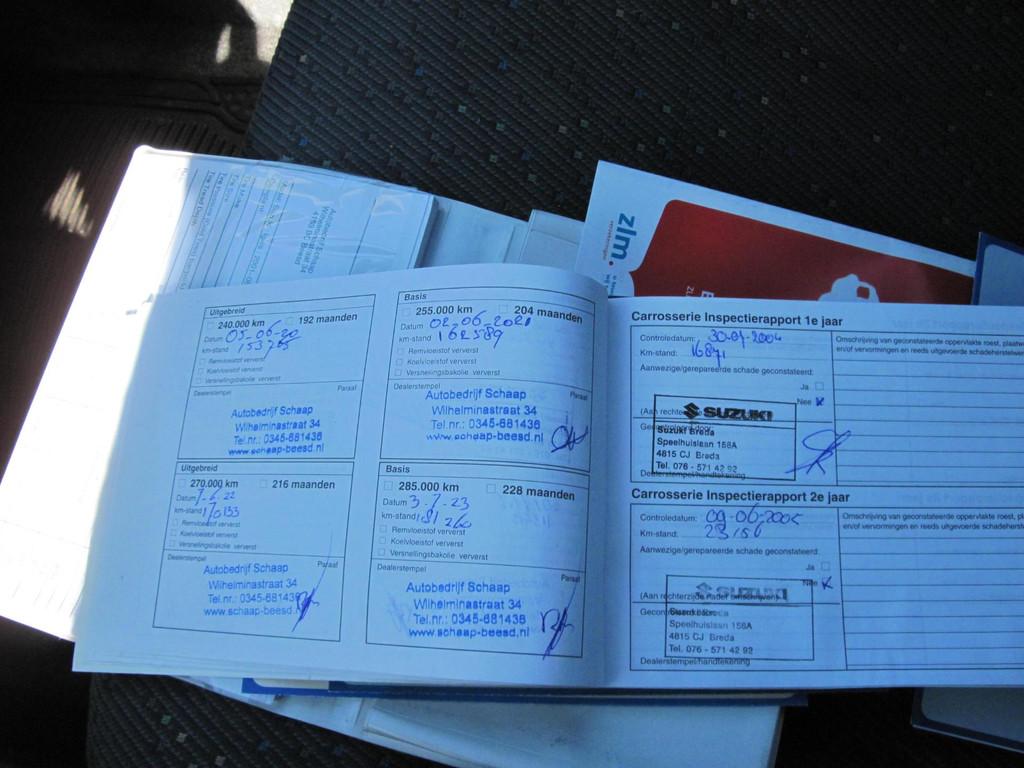 zlm.
Autobedrijf Schaap
Wilhelminastraat 34
4153 BC Beesd
Uitgebreid
240.000 km 192 maanden
Datum 05-06-20
km-stand 153725
Remvloeistof ververst
Koelvloeistof ververst
Versnellingsbakolie ververst
Dealerstempel Paraaf
Autobedrijf Schaap
Wilhelminastraat 34
Tel.nr.: 0345-681436
www.schaap-beesd.nl
Basis
255.000 km 204 maanden
Datum 02-06-2021
km-stand 162589
Remvloeistof ververst
Koelvloeistof ververst
Versnellingsbakolie ververst
Dealerstempel Paraaf
Autobedrijf Schaap
Wilhelminastraat 34
Tel.nr.: 0345-681436
www.schaap-beesd.nl
Uitgebreid
270.000 km 216 maanden
Datum 7-6-22
km-stand 170133
Remvloeistof ververst
Koelvloeistof ververst
Versnellingsbakolie ververst
Dealerstempel Paraaf
Autobedrijf Schaap
Wilhelminastraat 34
Tel.nr.: 0345-681436
www.schaap-beesd.nl
Basis
285.000 km 228 maanden
Datum 3-7-23
km-stand 181260
Remvloeistof ververst
Koelvloeistof ververst
Versnellingsbakolie ververst
Dealerstempel Paraaf
Autobedrijf Schaap
Wilhelminastraat 34
Tel.nr.: 0345-681436
www.schaap-beesd.nl
Carrosserie Inspectierapport 1e jaar
Controledatum:
Km-stand: 16871
Aanwezige/gerepareerde schade geconstateerd:
Ja
Nee
(Aan rechter
SUZUKI
Suzuki Breda
Speelhuislaan 158A
4815 CJ Breda
Tel. 076 - 571 42 92
Dealerstempel/handtekening
Omschrijving van geconstateerde oppervlakte roest, plaatw
en/of vervormingen en reeds uitgevoerde schadeherstelwer
Carrosserie Inspectierapport 2e jaar
Controledatum:
Km-stand: 23186
Aanwezige/gerepareerde schade geconstateerd:
Ja
Nee
(Aan rechterzijde nader omschrijven)
SUZUKI
Suzuki Breda
Speelhuislaan 158A
4815 CJ Breda
Tel. 076 - 571 42 92
Dealerstempel/handtekening
Omschrijving van geconstateerde oppervlakte roest, pl
en/of vervormingen en reeds uitgevoerde schadeherste